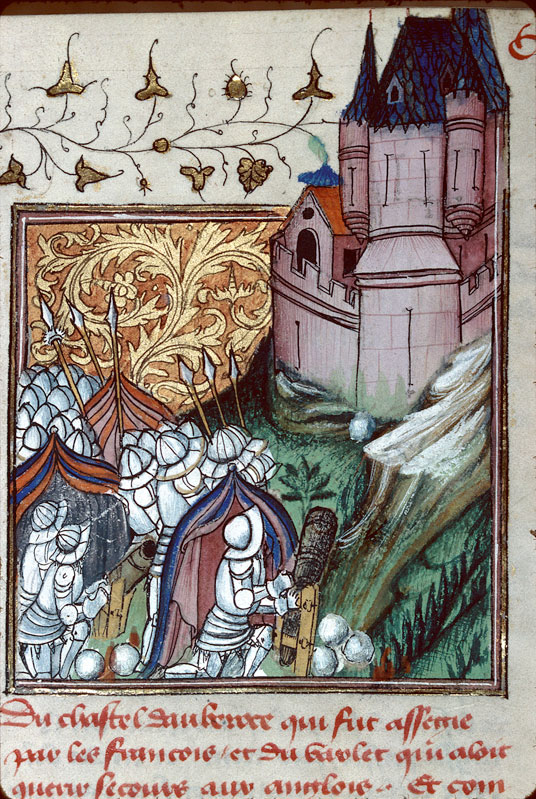 Du chastel dauberoce qui fut assegie
par les francois / et du varlet qui aloit
querir secours aux anglois · Et com